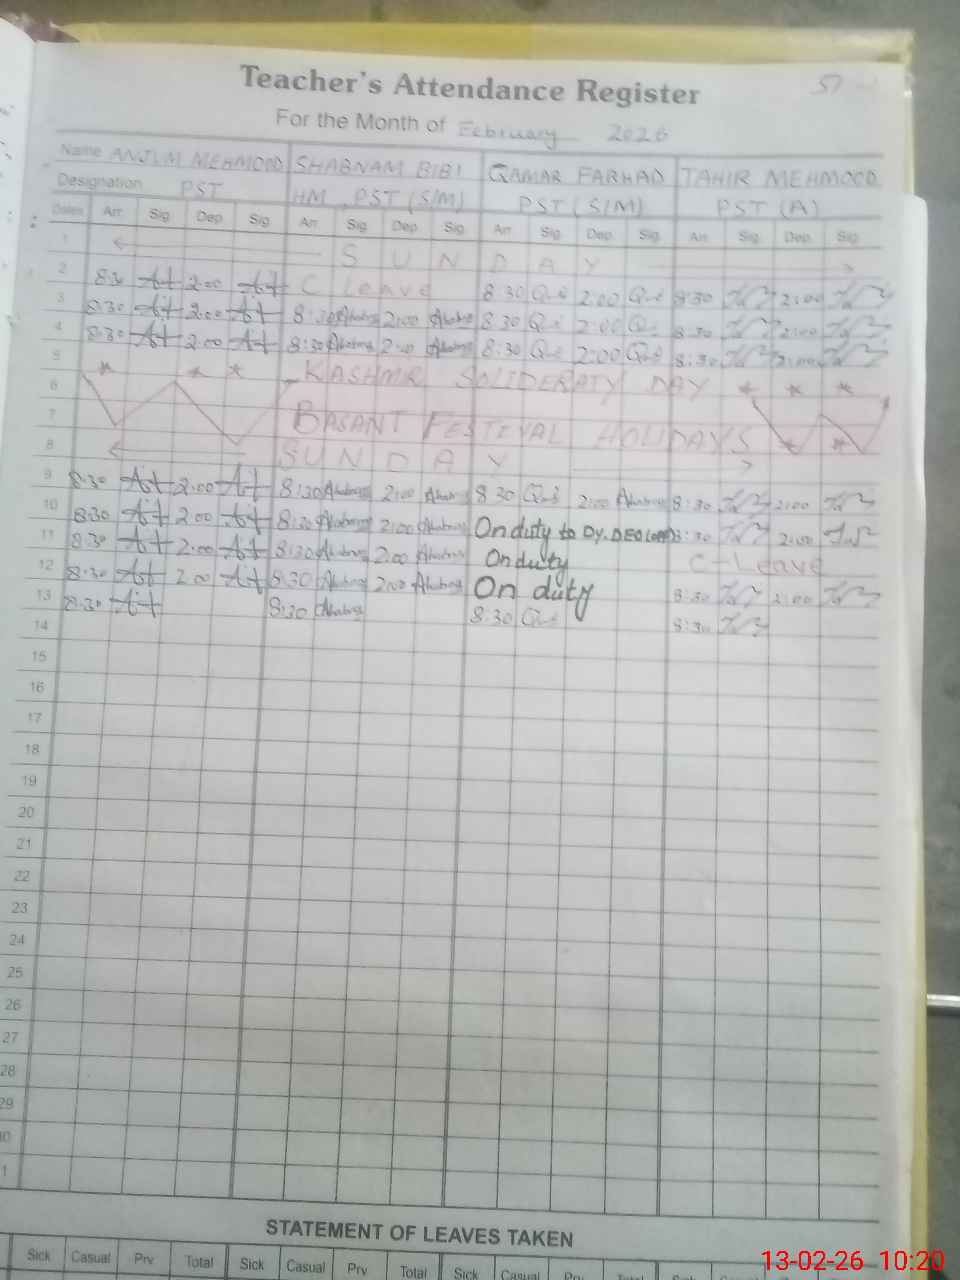 57
Teacher's Attendance Register
For the Month of February 2026
Name ANJUM MEHMOOD SHABNAM BIBI QAMAR FARHAD TAHIR MEHMOOD
Designation PST HM, PST (S/M) PST (S/M) PST (A)
Dates Arr. Sig. Dep. Sig. Arr. Sig. Dep. Sig. Arr. Sig. Dep. Sig. Arr. Sig. Dep. Sig.
1 SUNDAY
2 8:30 2:00 C Leave 8:30 2:00 8:30 2:00
3 8:30 2:00 8:30 2:00 8:30 2:00 8:30 2:00
4 8:30 2:00 8:30 2:00 8:30 2:00 8:30 2:00
5 KASHMIR SOLIDERATY DAY
6
7 BASANT FESTIVAL HOLIDAYS
8 SUNDAY
9 8:30 2:00 8:30 2:00 8:30 2:00 8:30 2:00
10 8:30 2:00 8:30 2:00 On duty to Dy. DEO 8:30 2:00
11 8:30 2:00 8:30 2:00 On duty C-Leave
12 8:30 2:00 8:30 2:00 On duty 8:30 2:00
13 8:30 8:30 8:30 8:30
14
15
16
17
18
19
20
21
22
23
24
25
26
27
28
29
30
31
STATEMENT OF LEAVES TAKEN
Sick Casual Prv Total Sick Casual Prv Total Sick Casual Prv Total Sick Casual Prv Total
13-02-26 10:20